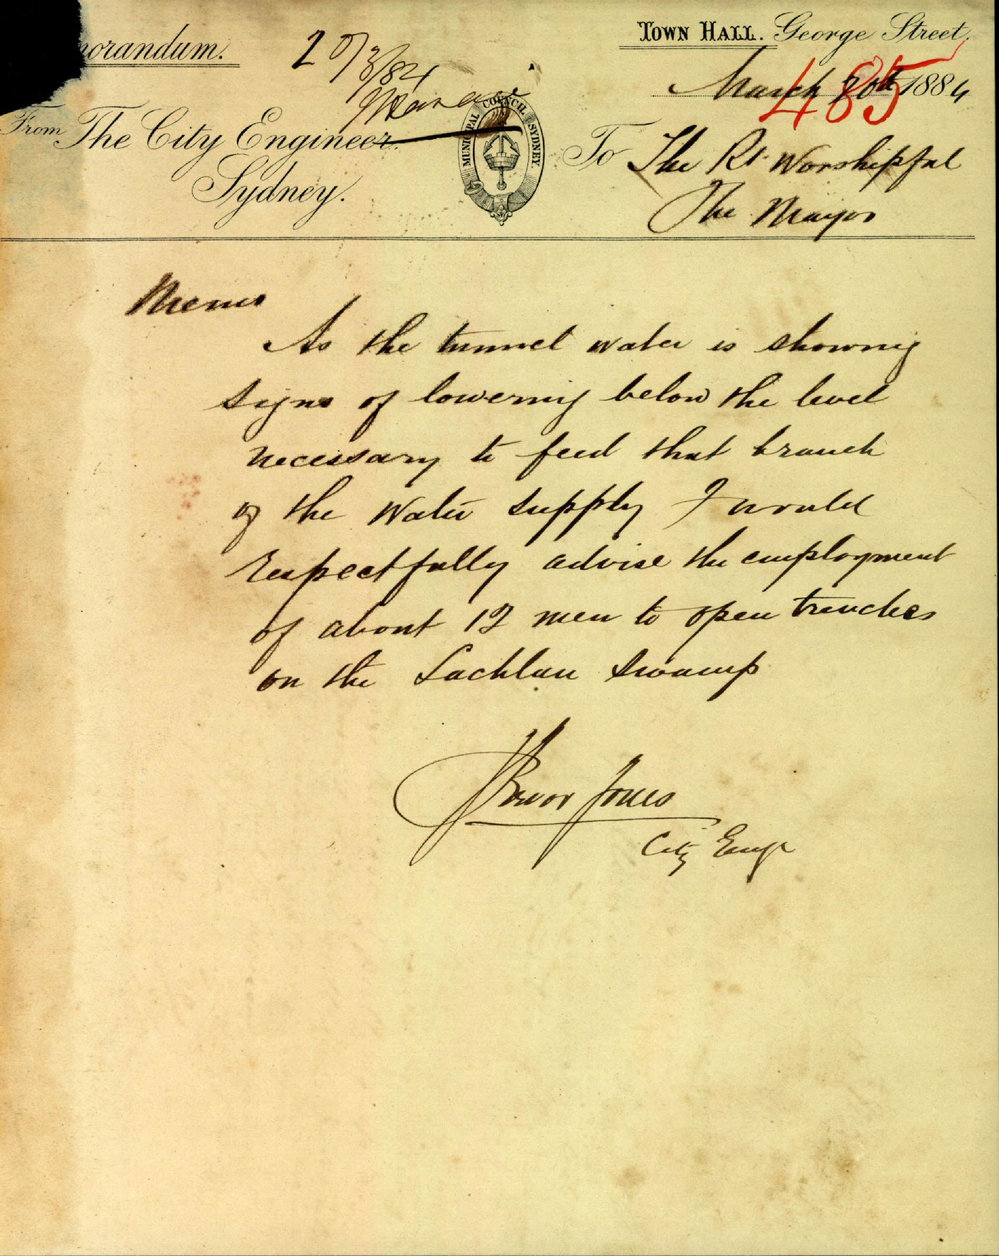 morandum.
20/3/84
TOWN HALL. George Street.
March 20th 1884
485
From The City Engineer
Sydney.
MUNICIPAL COUNCIL SYDNEY
To The Rt Worshipful
The Mayor
Memo
As the tunnel water is showing
signs of lowering below the level
necessary to feed that branch
of the Water supply I would
respectfully advise the employment
of about 12 men to open trenches
on the Lachlan Swamp
Trevor Jones
City Engr